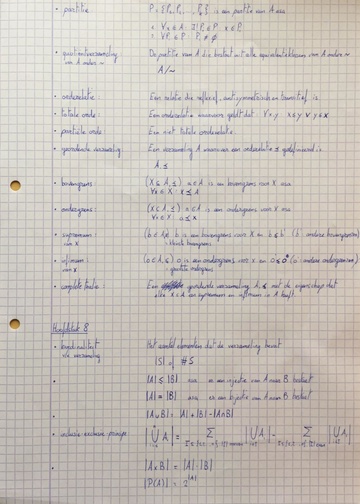 • partitie P = {P₁, P₂, ..., Pₖ} is een partitie van A asa
• ∀x ∈ A ∃! Pᵢ ∈ P x ∈ Pᵢ
• ∀Pᵢ ∈ P Pᵢ ≠ ∅
• quotiëntverzameling De partitie van A die bestaat uit alle equivalentieklassen van A onder ~
van A onder ~ A/~
• orderelatie Een relatie die reflexief, antisymmetrisch en transitief is
• totale orde: Een orderelatie waarvoor geldt dat ∀x,y x≤y ∨ y≤x
• partiële orde Een niet totale orderelatie
• geordende verzameling Een verzameling A waarvan een orderelatie ≤ gedefinieerd is
A, ≤
• bovengrens: (X ⊆ A, ≤) a ∈ A is een bovengrens voor X asa
∀x ∈ X x ≤ a
• ondergrens: (X ⊆ A, ≤) o ∈ A is een ondergrens voor X asa
∀x ∈ X o ≤ x
• supremum: (b ∈ A, ≤) b is een bovengrens voor X en b ≤ b' (b': andere bovengrenzen)
van X = kleinste bovengrens
• infimum: (o ∈ A, ≤) o is een ondergrens voor X en
van X = grootste ondergrens
• complete tralie: Een geordende verzameling A, ≤ met de eigenschap dat
elke X ⊂ A een supremum en infimum in A heeft.
Hoofdstuk 8
• kardinaliteit Het aantal elementen dat de verzameling bevat
van verzameling
|S| of #S
• |A| ≤ |B| asa er een injectie van A naar B bestaat
• |A| = |B| asa er een bijectie van A naar B bestaat
|A∪B| = |A| + |B| - |A∩B|
• inclusie-exclusie-principe
• |A×B| = |A|·|B|
|P(A)| = 2^|A|